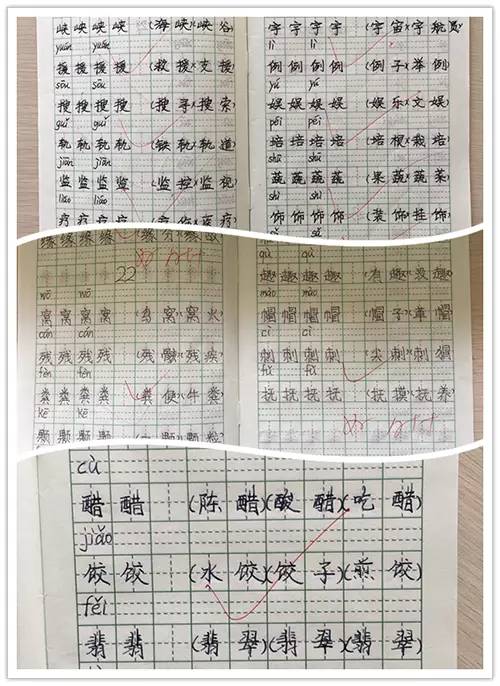 峡 峡 峡 峡 (海峡)(峡谷)
yuán yuán
援 援 援 援 (救援)(支援)
sōu sōu
搜 搜 搜 搜 (搜寻)(搜索)
guǐ guǐ
轨 轨 轨 轨 (铁轨)(轨道)
jiān jiān
监 监 监 监 (监控)(监视)
liáo liáo
疗 疗 疗 疗
宇 宇 宇 宇 (宇宙)(宇航员)
lì lì
例 例 例 例 (例子)(举例)
yú yú
娱 娱 娱 娱 (娱乐)(文娱)
péi péi
培 培 培 培 (培根)(栽培)
shū shū
蔬 蔬 蔬 蔬 (果蔬)(蔬菜)
shì shì
饰 饰 饰 饰 (装饰)(挂饰)
缘 缘 缘 缘
22
wō wō
窝 窝 窝 (鸟窝)(窝火)
cán cán
残 残 残 (残骸)(残疾)
fèn fèn
粪 粪 粪 (粪便)(牛粪)
kē kē
颗 颗 颗
qù qù
趣 趣 趣 (有趣)(没趣)
mào mào
帽 帽 帽 (帽子)(草帽)
cì cì
刺 刺 刺 (尖刺)(刺猬)
fǔ fǔ
抚 抚 抚 抚 (抚摸)(抚养)
cù
醋 醋 (陈醋)(酸醋)(吃醋)
jiǎo
饺 饺 (水饺)(饺子)(煎饺)
fěi
翡 翡 (翡翠)(翡翠)(翡翠)